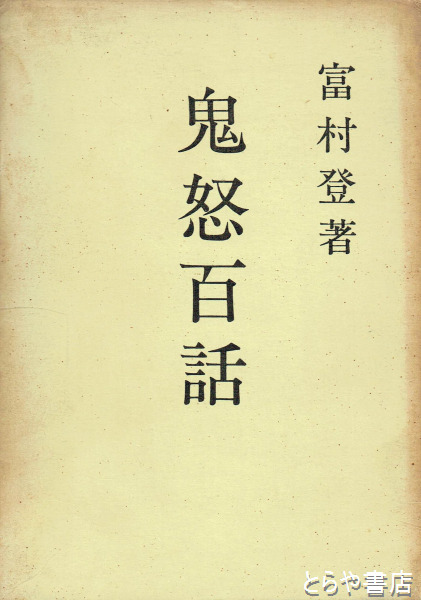 富村登著
鬼怒百話
とらや書店